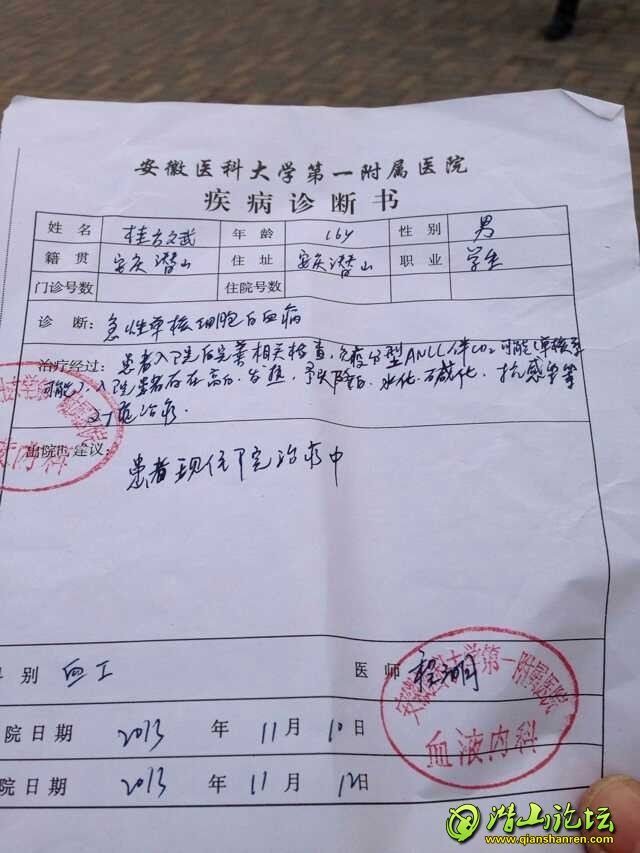 安徽医科大学第一附属医院
疾病诊断书
姓名 桂方文武 年龄 16y 性别 男
籍贯 安庆潜山 住址 安庆潜山 职业 学生
门诊号数 住院号数
诊断: 急性单核细胞白血病
治疗经过: 患者入院后完善相关检查, 免疫分型ANLL 可能(单核系
可能), 入院患者存在高白、发热, 予以降白、水化、碱化、抗感染等
对症治疗.
出院时建议:
患者现住院治疗中
科别 血 医师 程
院日期 2013年11月10日
院日期 2013年11月12日
安徽医科大学第一附属医院
血液内科
潜山论坛
www.qianshanren.com